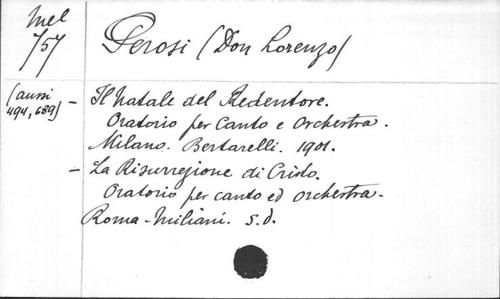 Mel
757
Perosi (Don Lorenzo)
(aussi
494, 689)
- Il Natale del Redentore.
Oratorio per Canto e Orchestra.
Milano. Bertarelli. 1901.
- La Risurrezione di Cristo.
Oratorio per canto ed orchestra.
Roma - Miliani. S.d.